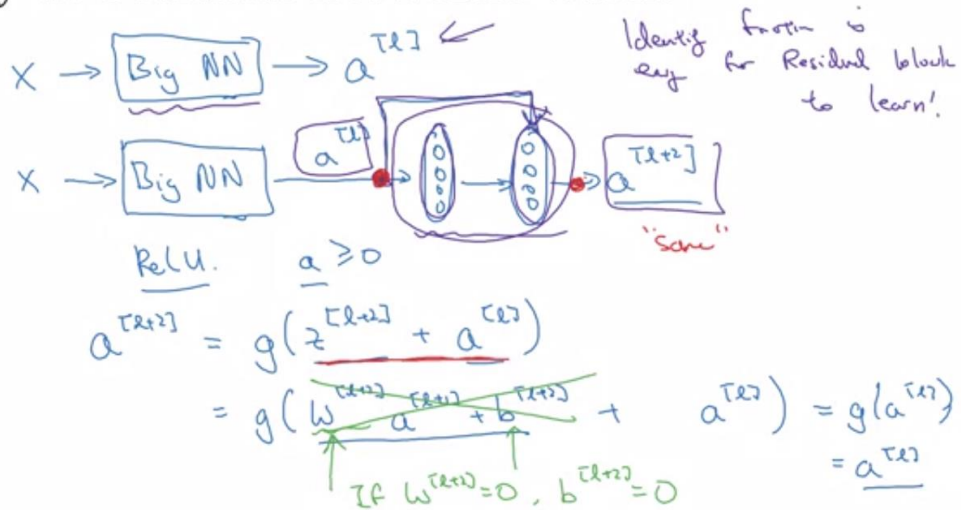 X → Big NN → a^[l]
Identity function is
easy for Residual block
to learn!
X → Big NN → a^[l] → → a^[l+2]
"same"
ReLU. a ≥ 0
a^[l+2] = g(z^[l+2] + a^[l])
= g(W^[l+2] a^[l+1] + b^[l+2] + a^[l]) = g(a^[l])
= a^[l]
If W^[l+2] = 0, b^[l+2] = 0